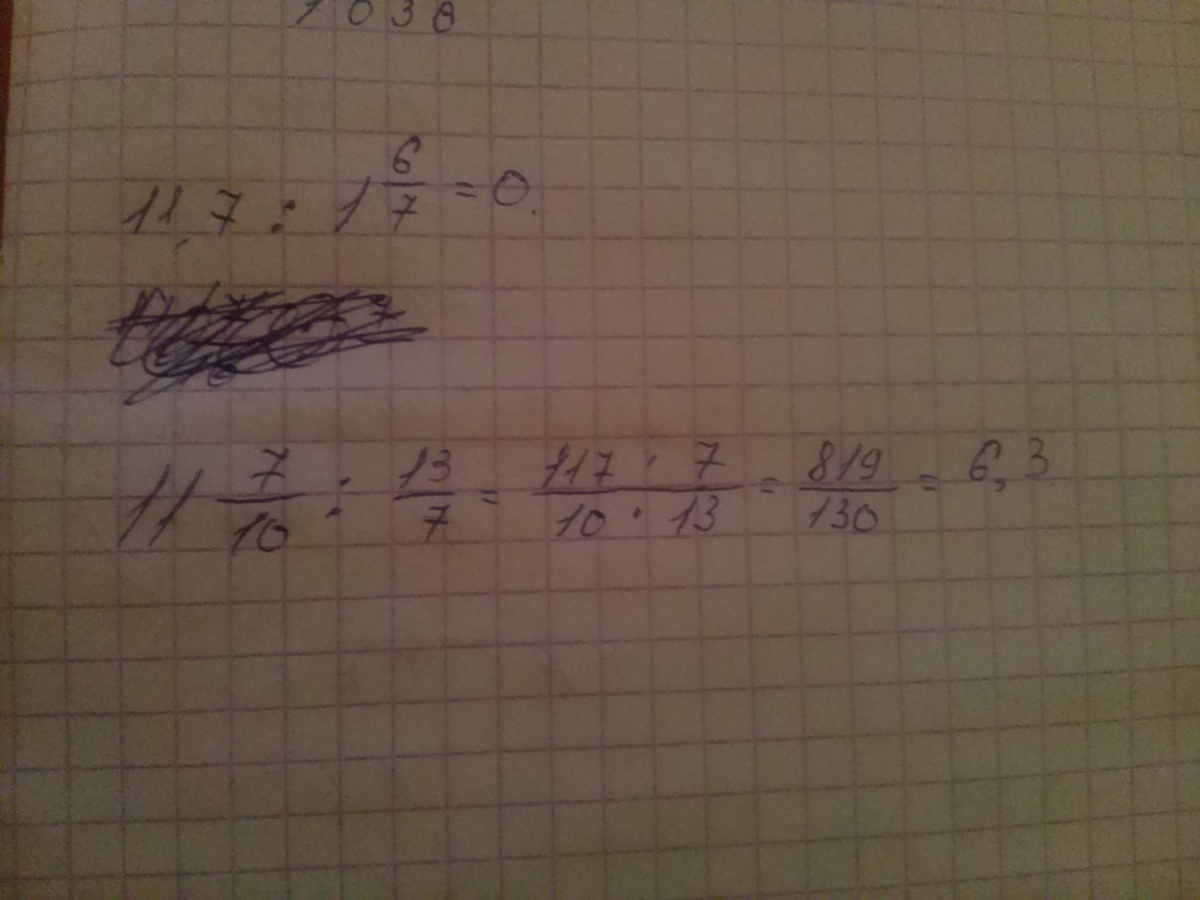 1 0 3 8
11,7 : 1 6/7 = 0.
11 7/10 : 13/7 = 117 · 7 / 10 · 13 = 819/130 = 6,3